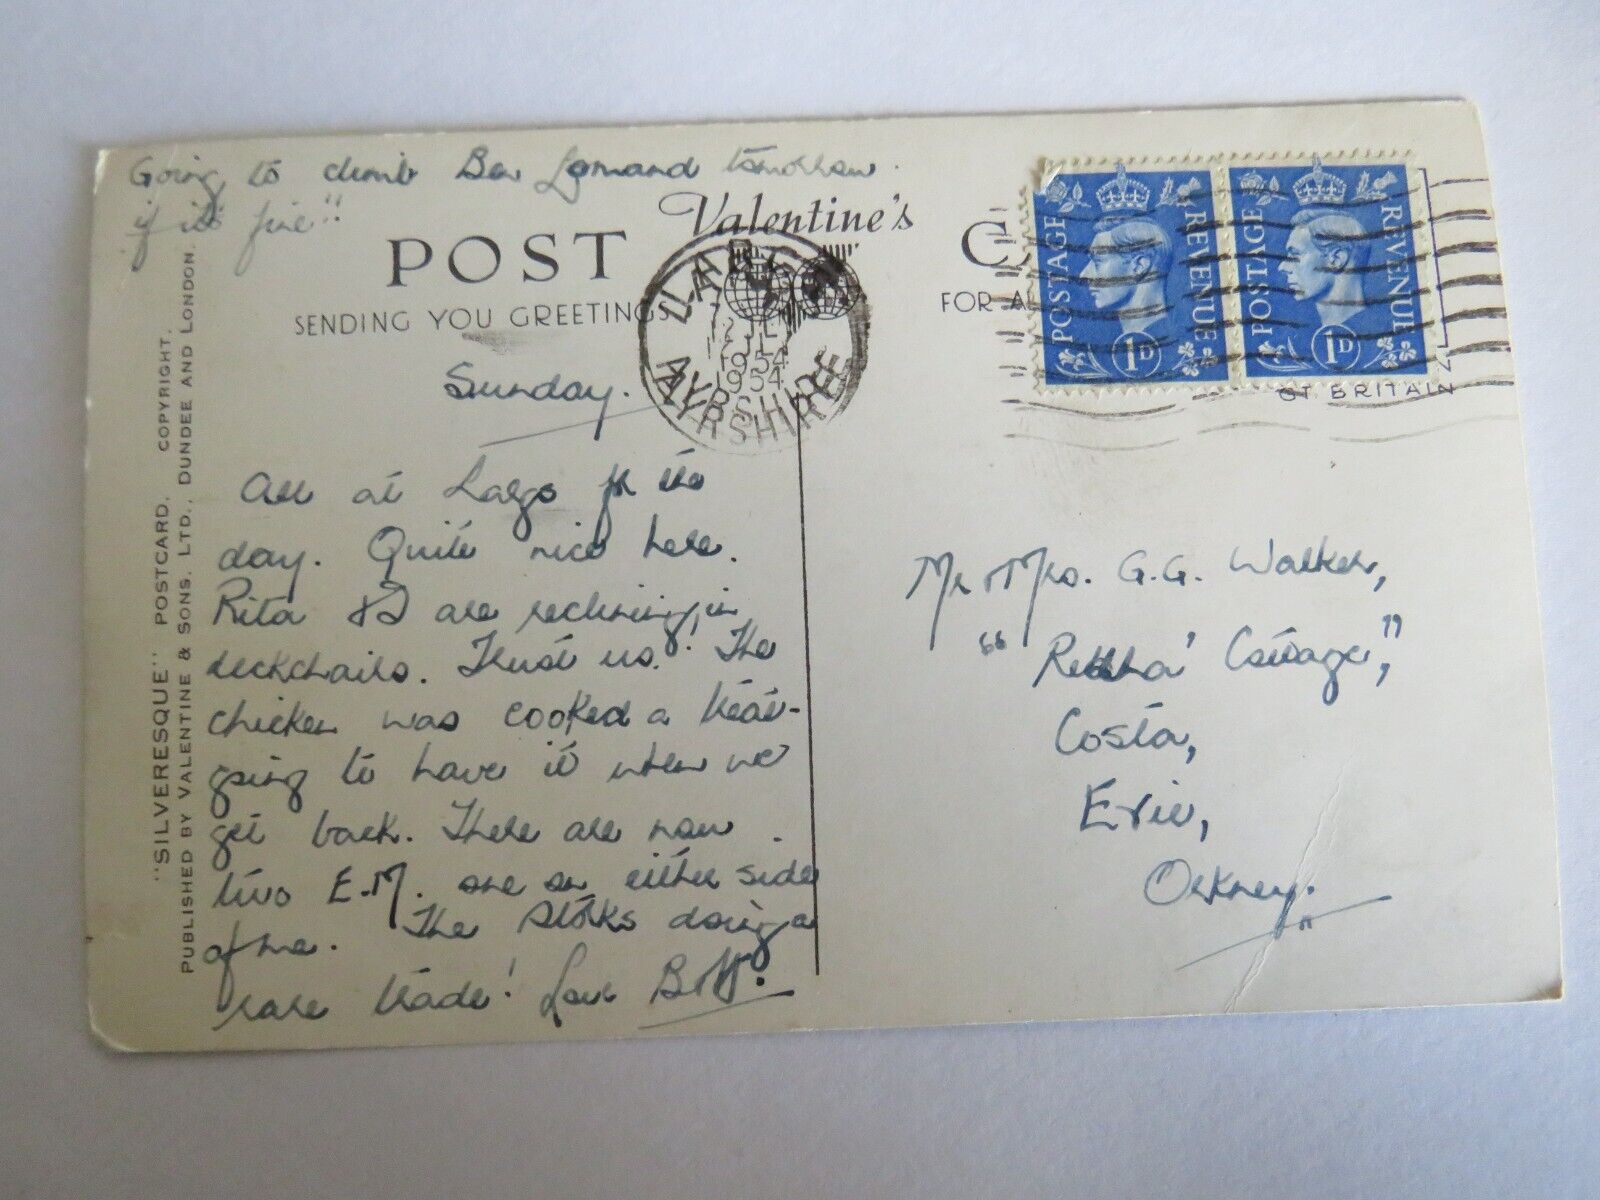 Going to climb Ben Lomand tomorrow
if its fine"
Valentine's
POST C
SENDING YOU GREETINGS
FOR
GT. BRITAIN
LARGS
AYRSHIRE
1954
POSTAGE REVENUE 1D
POSTAGE REVENUE 1D
"SILVERESQUE" POSTCARD. COPYRIGHT.
PUBLISHED BY VALENTINE & SONS. LTD., DUNDEE AND LONDON.
Sunday.
All at Largs for the
day. Quite nice here.
Rita & I are reclining in
deckchairs. Trust us! The
chicken was cooked a treat-
going to have it when we
get back. There are now
two E.M. one on either side
of me. The Storks doing a
rare trade! Love
Mr & Mrs. G.G. Walker,
" Cottage,"
Costa,
Evie,
Orkney.